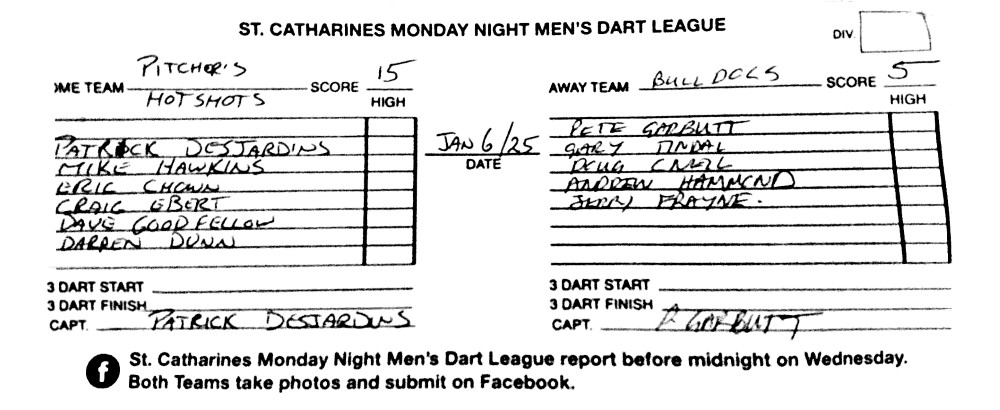 ST. CATHARINES MONDAY NIGHT MEN'S DART LEAGUE
DIV.
PITCHER'S
OME TEAM HOTSHOTS SCORE 15
HIGH
PATRICK DESJARDINS
MIKE HAWKINS
ERIC CHOWN
CRAIG EBERT
DAVE GOODFELLOW
DARREN DUNN
3 DART START
3 DART FINISH
CAPT. PATRICK DESJARDINS
JAN 6/25
DATE
AWAY TEAM BULLDOGS SCORE 5
HIGH
PETE GARBUTT
GARY TINDAL
DOUG
ANDREW HAMMOND
JERRY FRAYNE.
3 DART START
3 DART FINISH
CAPT. P GARBUTT
St. Catharines Monday Night Men's Dart League report before midnight on Wednesday.
Both Teams take photos and submit on Facebook.